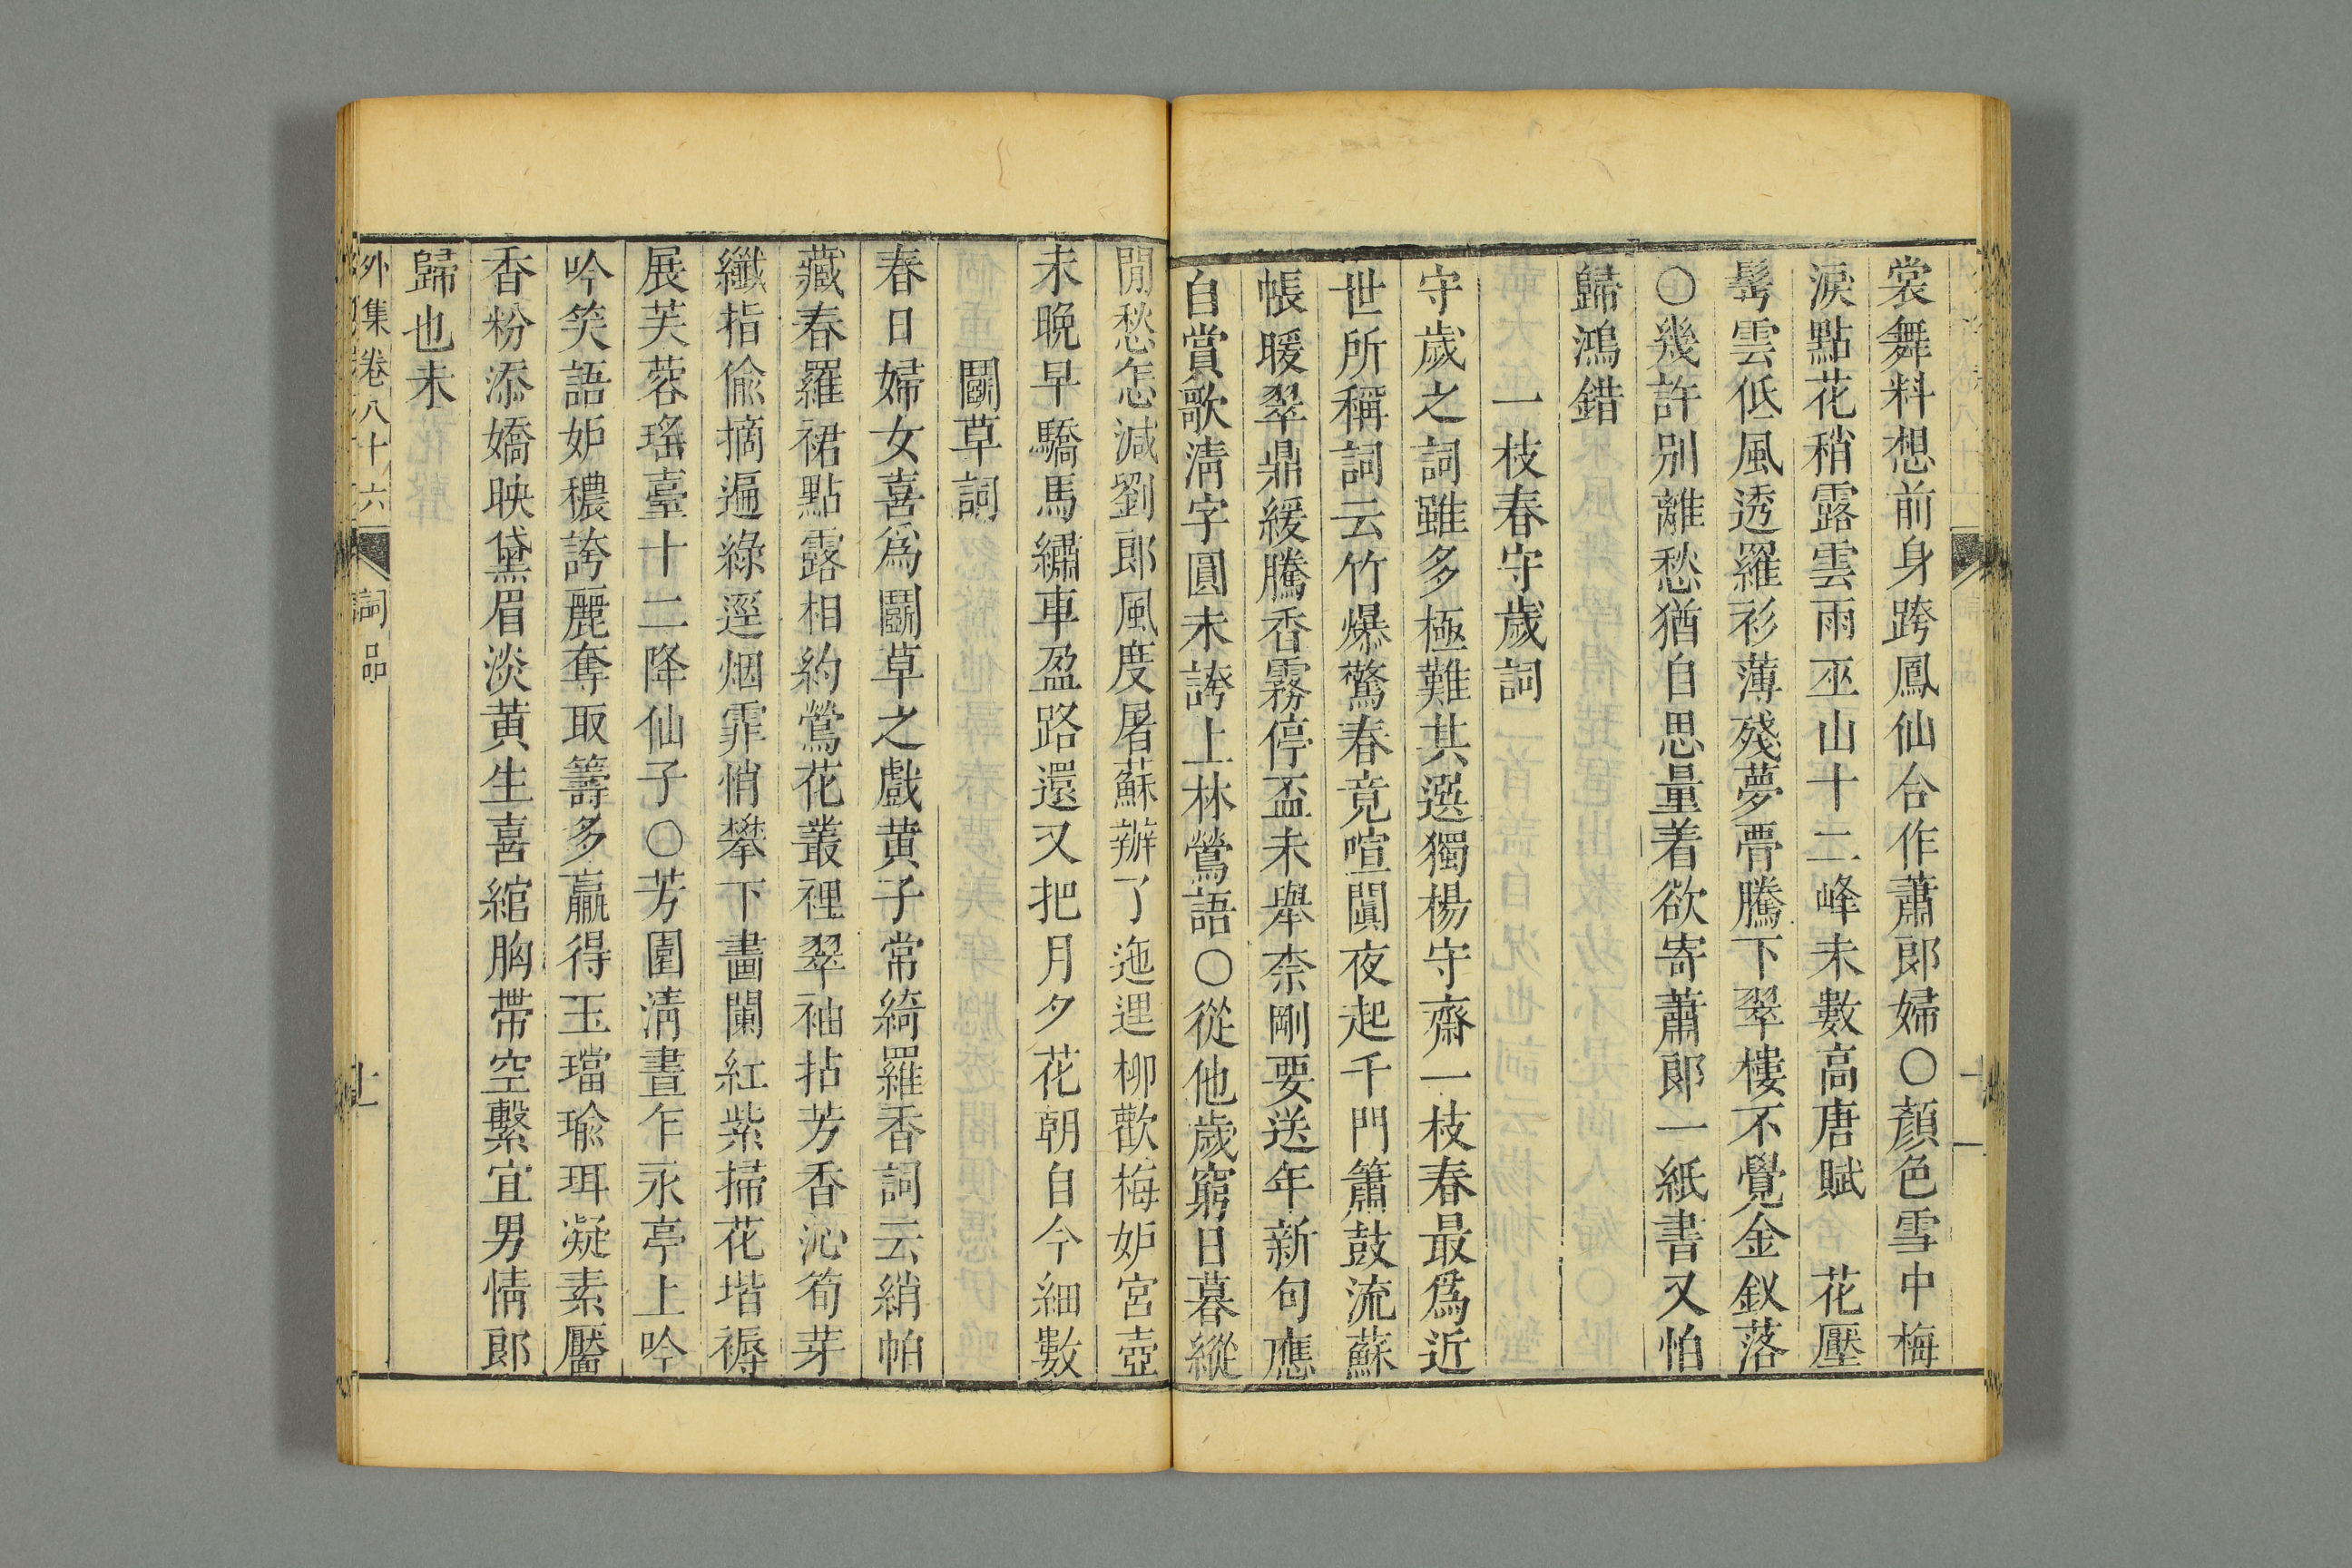 裳舞料想前身跨鳳仙合作蕭郎婦〇顏色雪中梅
淚點花稍露雲雨巫山十二峰未數高唐賦 花壓
髩雲低風透羅衫薄殘夢瞢騰下翠樓不覺金釵落
〇幾許别離愁猶自思量着欲寄蕭郎一紙書又怕
歸鴻錯
一枝春守歲詞
守歲之詞雖多極難其選獨楊守齋一枝春最爲近
世所稱詞云竹爆驚春竟喧闐夜起千門簫鼓流蘇
帳暖翠鼎緩騰香霧停盃未舉柰剛要送年新句應
自賞歌淸字圓未誇上林鶯語〇從他歲窮日暮縱
閒愁怎減劉郎風度屠蘇辦了迤邐柳歡梅妒宮壺
未晩早驕馬繡車盈路還又把月夕花朝自今細數
鬭草詞
春日婦女喜爲鬭草之戲黄子常綺羅香詞云綃帕
藏春羅裙點露相約鶯花叢裡翠袖拈芳香沁筍芽
纖指偸摘遍綠逕烟霏悄攀下畵闌紅紫掃花堦褥
展芙蓉瑤臺十二降仙子〇芳園淸晝乍永亭上吟
吟笑語妒穠誇麗奪取籌多贏得玉璫瑜珥凝素靨
香粉添嬌映黛眉淡黄生喜綰胸帶空繫宜男情郎
歸也未
外集卷八十六
詞品
十一